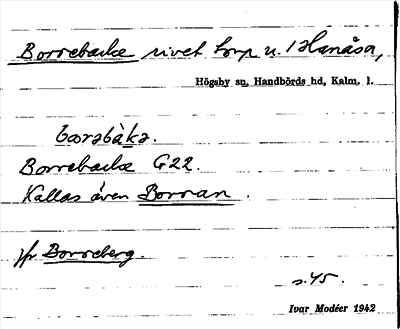 Borrebacke rivet torp u. 1 Hanåsa,
Högsby sn, Handbörds hd, Kalm. l.
bɷrəbàkə.
Borrebacke G22.
Kallas även Borran.
jfr Borreberg.
s. 45.
Ivar Modéer 1942